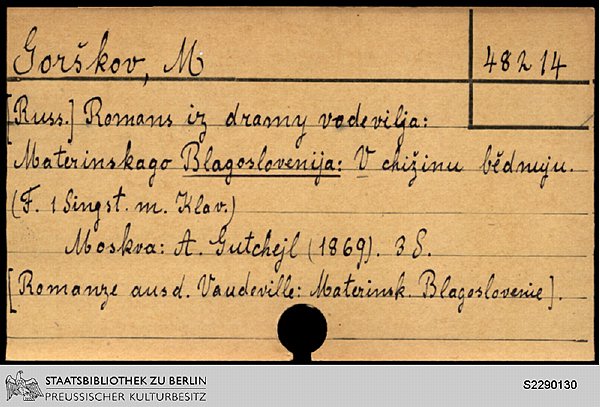 Gorškov, M
48214
[Russ.] Romans iz dramy vodevilja:
Materinskago Blagoslovenija: V chižinu bědnuju.
(F. 1 Singst. m. Klav.)
Moskva: A. Gutchejl (1869). 3 S.
[Romanze aus d. Vaudeville: Materinsk. Blagoslovenie].
STAATSBIBLIOTHEK ZU BERLIN
PREUSSISCHER KULTURBESITZ
S2290130